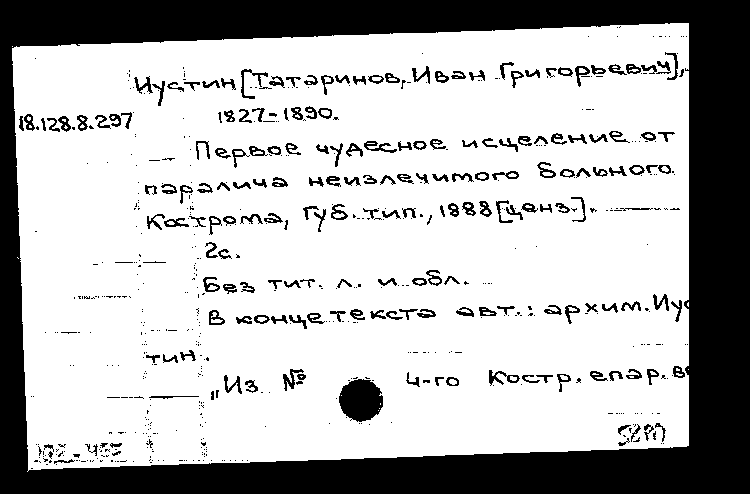 Иустин [Татаринов, Иван Григорьевич],
18.128.8.297 1827-1890.
Первое чудесное исцеление от
паралича неизлечимого больного
Кострома, Губ. тип., 1888 [ценз.].
2с.
Без тит. л. и обл.
В конце текста авт.: архим. Иус
тин.
„Из № 4-го Костр. епар. ве